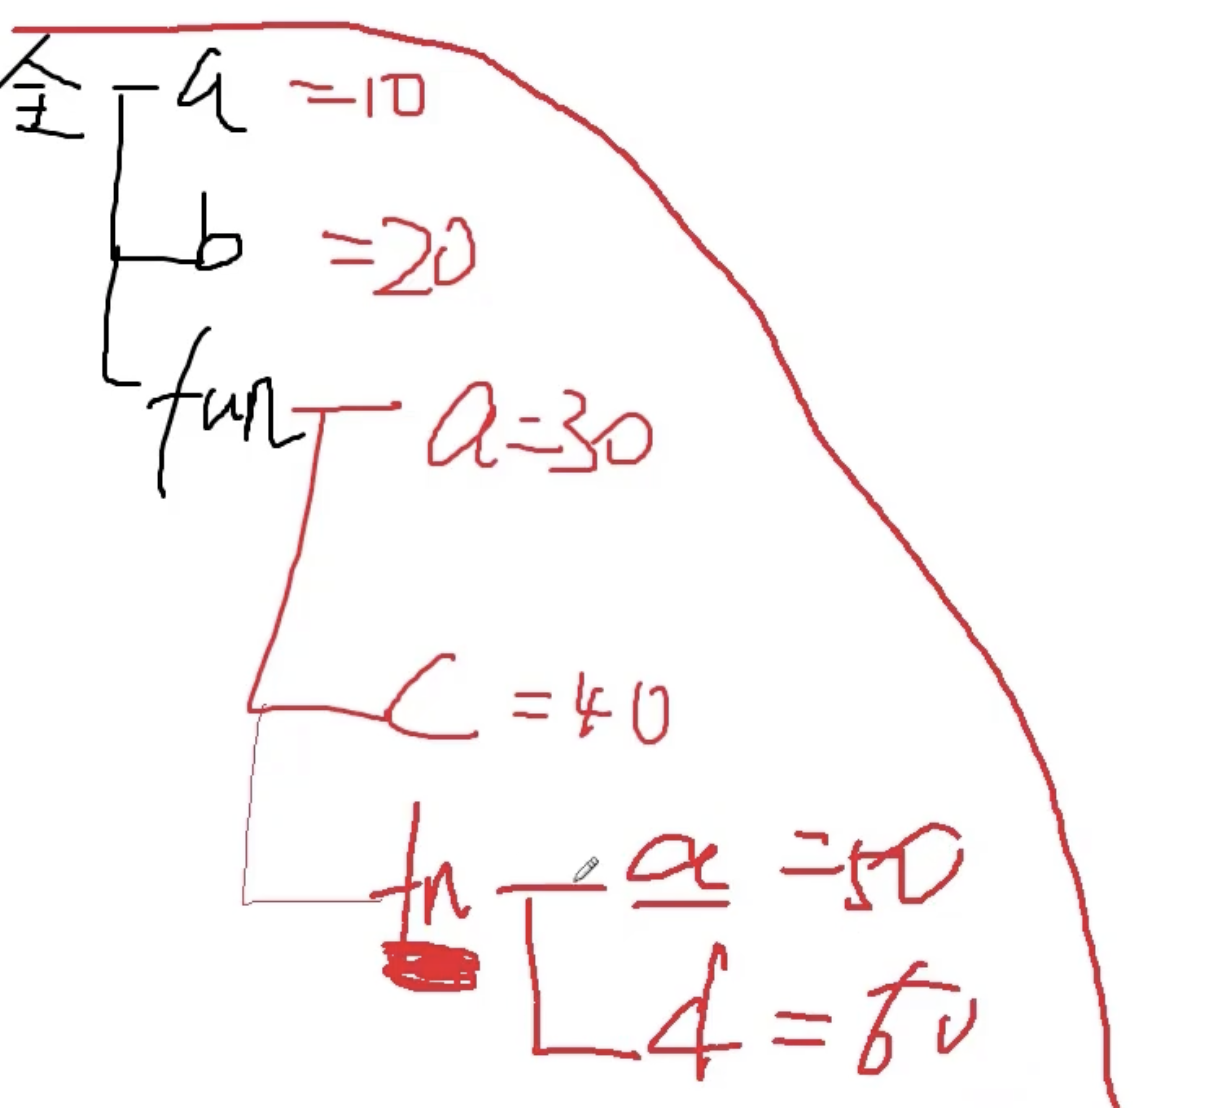 全 a =10
b =20
fun a=30
c =40
fn a =50
d =60